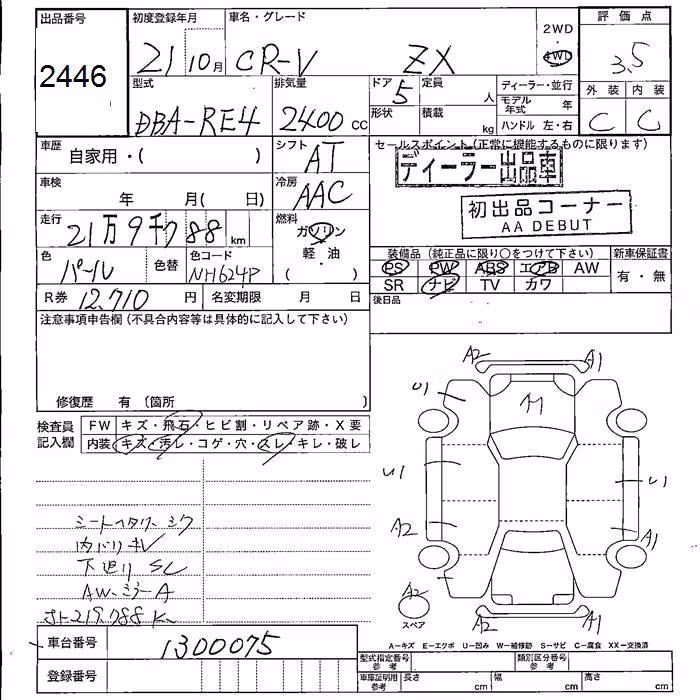 出品番号 初度登録年月 車名・グレード 評価点
2446 21 10月 CR-V ZX 2WD 4WD 3.5
型式 排気量 ドア 5 定員 人 ディーラー・並行 外装 内装
DBA-RE4 2400 cc 形状 積載 kg モデル年式 年 C C
ハンドル 左・右
車歴 シフト セールスポイント(正常に機能するものに限ります)
自家用・( ) AT ディーラー出品車
車検 冷房
年 月( 日) AAC 初出品コーナー
AA DEBUT
走行 燃料
21万9千788 km ガソリン
軽・油
( )
色 色替 色コード 装備品(純正品に限り○をつけて下さい) 新車保証書
パール NH624P PS PW ABS エアB AW 有・無
SR ナビ TV カワ
R券 12,710 円 名変期限 月 日 後日品
注意事項申告欄(不具合内容等は具体的に記入して下さい)
修復歴 有 〔箇所 〕
検査員 FW キズ・飛石・ヒビ割・リペア跡・X要
記入欄 内装 キズ・汚レ・コゲ・穴・スレ・キレ・破レ
A2 A1
U1 A1
U1 U1
A2 A1
A2
スペア A2 A1
シートヘタリ・シワ
内バリキレ
下廻り SC
AW・ミラーA
メーター219,788K
A=キズ E=エクボ U=凹み W=補修跡 S=サビ C=腐食 XX=交換済
車台番号 1300075
型式指定番号 参考 類別区分番号 参考
登録番号 車庫証明用 参考 長さ cm 幅 cm 高さ cm